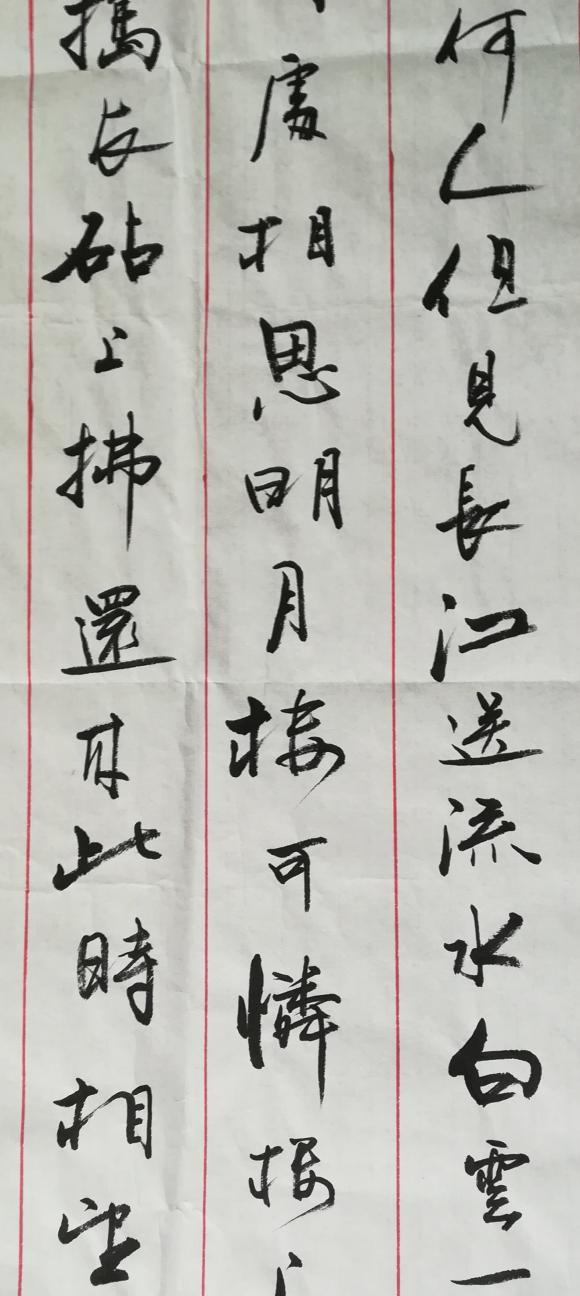 何人但見長江送流水白雲一
處相思明月樓可憐樓上
擣衣砧上拂還來此時相望